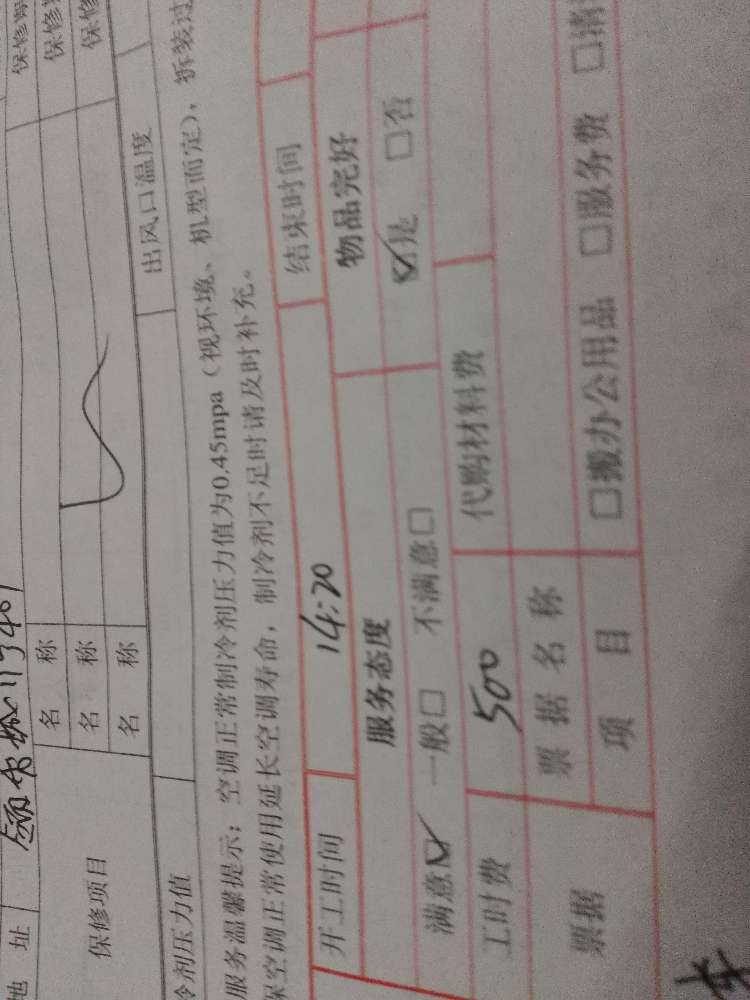 地 址
保修项目 名 称 保修
名 称 保修
名 称 保修
冷剂压力值 出风口温度
服务温馨提示：空调正常制冷剂压力值为0.45mpa（视环境、机型而定），拆装过
保空调正常使用延长空调寿命，制冷剂不足时请及时补充。
开工时间 14:20 结束时间
服务态度 物品完好
满意☑ 一般□ 不满意□ ☑是 □否
工时费 500 代购材料费
票据 票 据 名 称
项 目 □搬办公用品 □服务费 □清